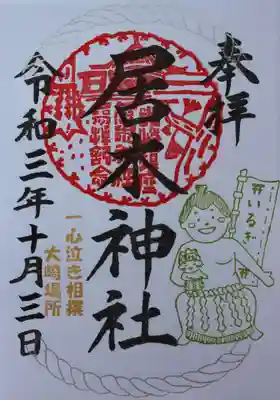 奉拝
居木神社
令和三年十月三日
一心泣き相撲
大崎場所
いるぎ